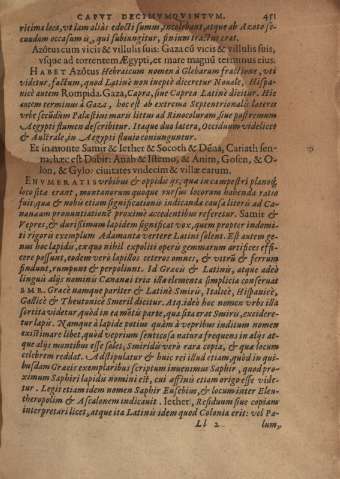 CAPVT DECIMVMQVINTVM. 451
ricima loca, vt iam aliàs edecti sumus, incolebant, atque ab Azoto se-
cundum occasum ij, qui subiungitur, sinium tractus erat.
Azôtus cum vicis & villulis suis: Gaza cũ vicis & villulis suis,
vsque ad torrentem Ægypti, et mare magnũ terminus eius.
HABET Azôtus Hebraicum nomen à Glebarum fractione, vti
videtur, factum, quod Latinè non ineptè diceretur Nouale, Hispa-
nicè autem Rompida. Gaza, Capra, siue Caprea Latinè dicitur. Hic
autem terminus à Gaza, hoc est ab extrema Septentrionalis lateris
vrbe secũdum Palæstinis maris littus ad Rinocoluram, siue postremum
Aegypti flumen describitur. Itaque duo latera, Occiduum videlicet
& Australe, in Aegypti fluuio coniunguntur.
Et in monte Samir & Iether & Socoth & Déna, Cariath sen-
na, hæc est Dabir: Anab & Istemo, & Anim, Gosen, & O-
lon, & Gylo: ciuitates vndecim & villæ earum.
ENVMERATIS vrbibus & oppidis ijs, quæ in campestri plano
loco sita erant, montanorum quoque rursus locorum habenda ratio
fuit, quæ & nobis etiam significationis indicanda causa literis ad Ca-
nanæam pronuntiationẽ proximè accedentibus referetur. Samir &
Vepres, & durissimum lapidem significat vox, quem propter indomi-
ti rigoris exemplum Adamanta vertere Latini solent. Est autem ge-
nus hoc lapidis, ex quo nihil expoliti operis gemmarum artifices effi-
cere possunt, eodem verò lapillos ceteros omnes, & vitrũ & ferrum
findunt, rumpunt & perpoliunt. Id Græcis & Latinis, atque adeò
linguis alijs nomine Cananæi tria illa elementa simplicia conseruat
S M R. Græcè namque pariter & Latinè Smiris, Italicè, Hispanicè,
Gallicè & Theutonicè Smeril dicitur. Atq. ideò hoc nomen vrbs illa
sortita videtur, quòd in ea mõtis parte, quæ sita erat Smiris, excidere-
tur lapis. Namque à lapide potius quàm à vepribus inditum nomen
existimare libet, quòd veprium sentosa natura frequens in alijs at-
que alijs montibus esse solet, Smiridis verò rara copia, & quæ locum
celebrem reddat. Adstipulatur & huic rei illud etiam, quòd in qui-
busdam Græcis exemplaribus scriptum inuenimus Saphir, quod pro-
ximum Saphiri lapidis nomini est, cui affinis etiam origo esse vide-
tur. Legit etiam idem nomen Saphir Eusebius, & locum inter Eleu-
theropolim & Ascalonem indicauit. Iether, Residuum siue copiam
interpretari licet, atque ita Latinis idem quod Colonia erit: vel Pa-
Ll 2 lum,